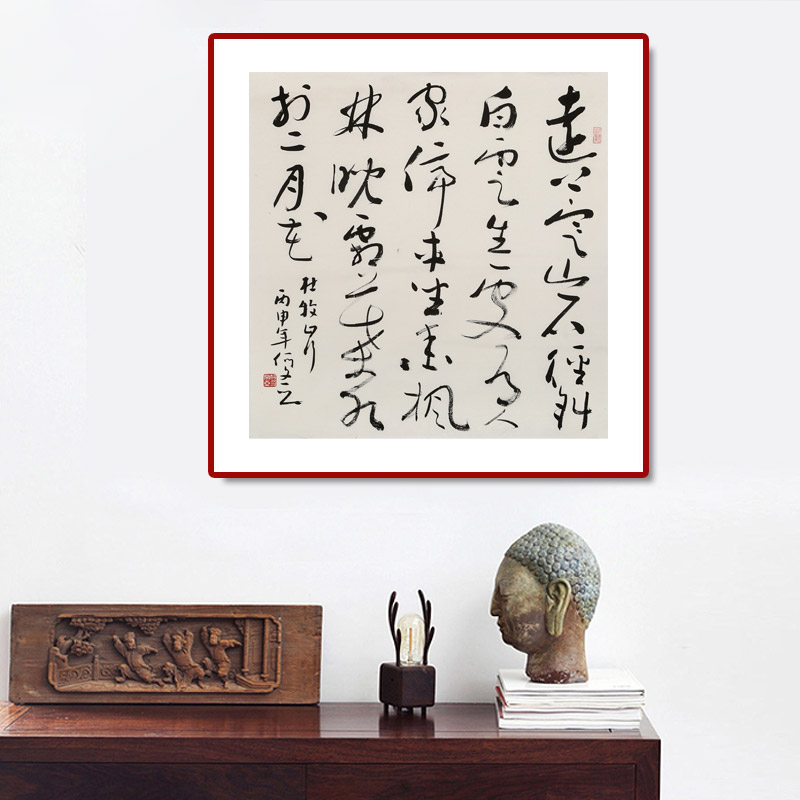 遠上寒山石徑斜
白雲生處有人
家停車坐愛楓
林晚霜葉紅
於二月花
杜牧山行
丙申年